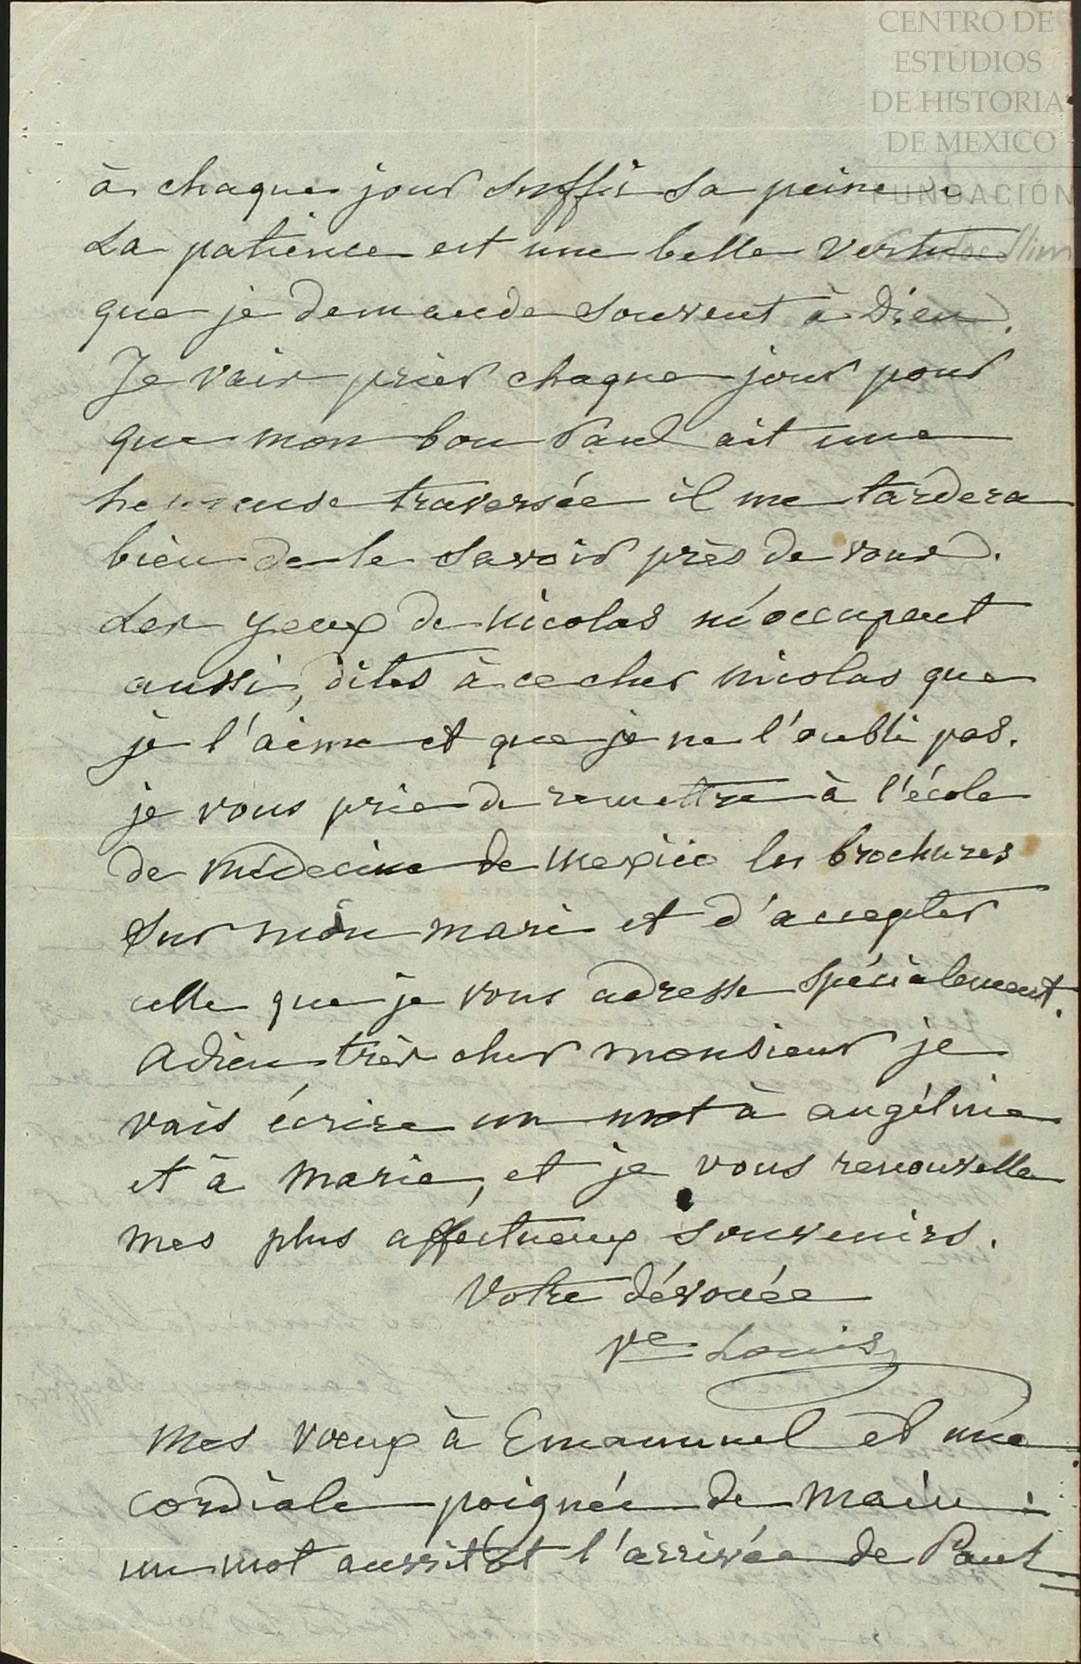 CENTRO DE
ESTUDIOS
DE HISTORIA
DE MEXICO
FUNDACIÓN
à chaque jour suffit sa peine
La patience est une belle vertu
que je demande souvent à Dieu.
Je vais prier chaque jour pour
que mon bon Paul ait une
heureuse traversée il me tardera
bien de le savoir près de vous.
Les yeux de nicolas m'occupent
aussi, dites à ce cher nicolas que
je l'aime et que je ne l'oubli pas.
je vous prie de remettre à l'école
de médecine de mexico les brochures
sur mon mari et d'accepter
celle que je vous adresse spécialement.
adieu très cher monsieur je
vais écrire un mot à angélina
et à maria, et je vous renouvelle
mes plus affectueux souvenirs.
Votre dévouée
Ve Louis
mes vœux à Emanuel et une
cordiale poignée de main.
un mot aussitôt l'arrivée de Paul